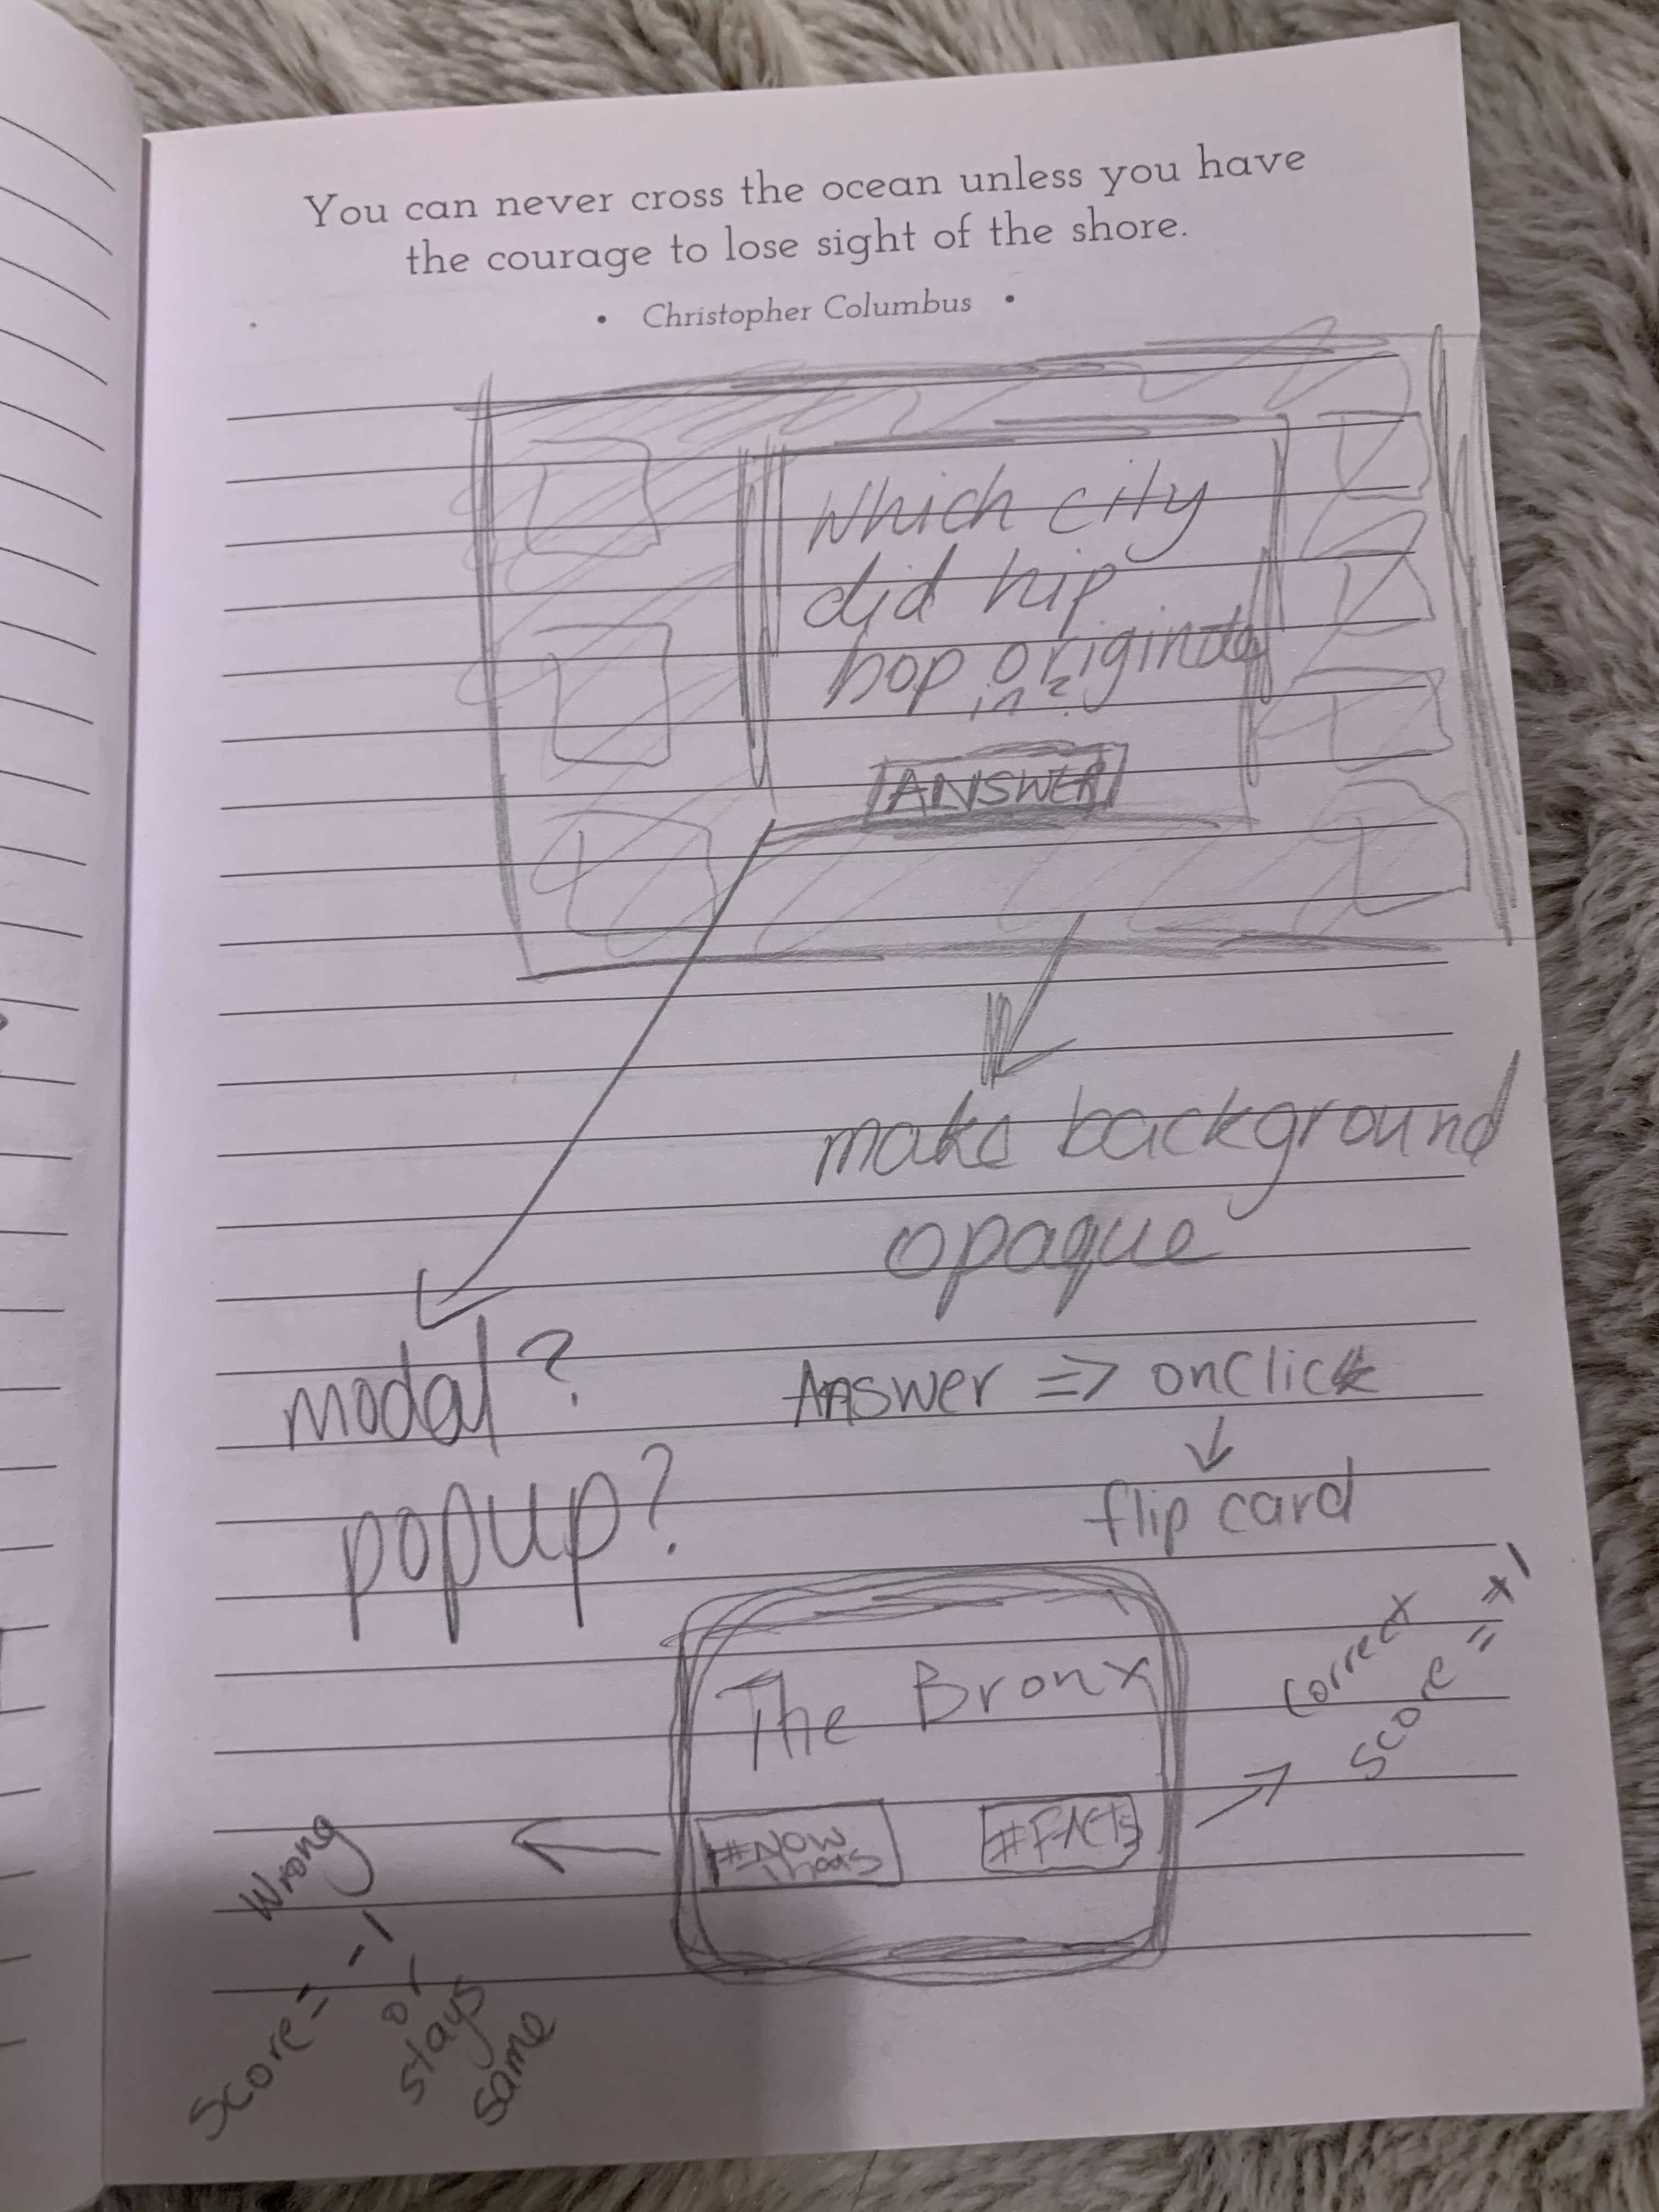 You can never cross the ocean unless you have
the courage to lose sight of the shore.
• Christopher Columbus •
Which city
did hip
hop originate
in?
ANSWER
make background
opaque
modal?
popup?
Answer => onClick
↓
flip card
The Bronx
#NOW
#FACTS
correct
score = +1
Wrong
score = -1
or
stays
same